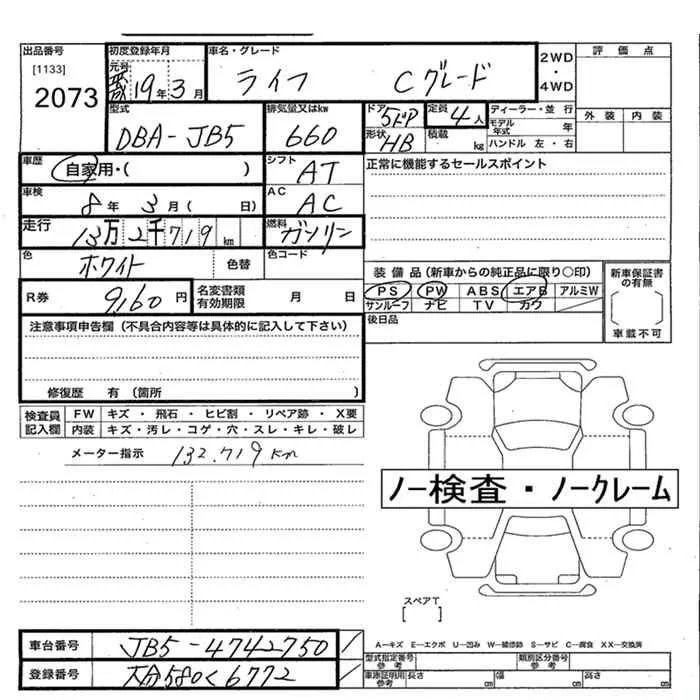 出品番号
[1133]
2073
初度登録年月
元号 平成 19年 3月
車名・グレード
ライフ Cグレード
2WD
・
4WD
評価点
外装 内装
型式
DBA-JB5
排気量又はkw
660
ドア 5ドア
形状 HB
定員 4人
積載 kg
ディーラー・並 行
モデル年式 年
ハンドル 左・右
車歴
自家用・( )
シフト
AT
正常に機能するセールスポイント
車検
8年 3月( 日)
AC
AC
走行
13万2千719km
燃料
ガソリン
色
ホワイト
色替
色コード
R券 9,160円
名変書類有効期限 月 日
装備品(新車からの純正品に限り○印)
PS PW ABS エアB アルミW
サンルーフ ナビ TV カワ
新車保証書の有無
車載不可
後日品
注意事項申告欄(不具合内容等は具体的に記入して下さい)
修復歴 有(箇所 )
検査員記入欄
FW キズ・飛石・ヒビ割・リペア跡・X要
内装 キズ・汚レ・コゲ・穴・スレ・キレ・破レ
メーター指示 132,719km
ノー検査・ノークレーム
スペアT
[ ]
車台番号 JB5-4742750
登録番号 大分580く6772
A-キズ E-エクボ U-凹み W-補修跡 S-サビ C-腐食 XX-交換済
型式指定番号参考
類別区分番号参考
車庫証明用参考 長さ cm 幅 cm 高さ cm